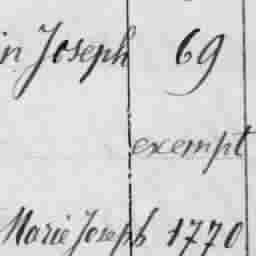 in Joseph 69
exempt
Marie Joseph 1770